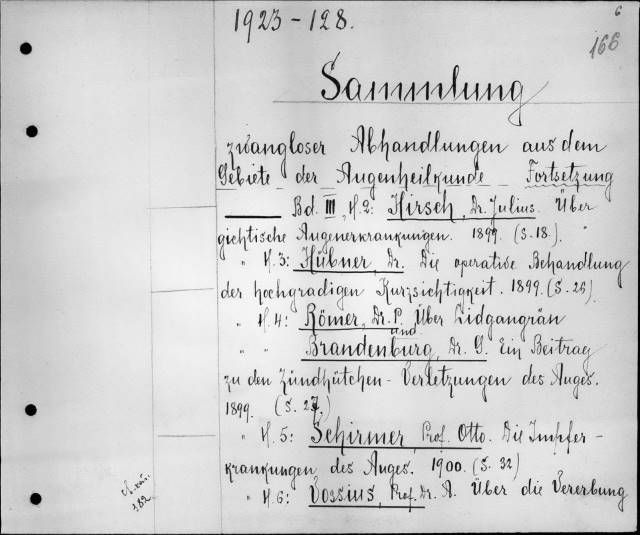 1923-128.
6
166
Sammlung
zwangloser Abhandlungen aus dem
Gebiete der Augenheilkunde Fortsetzung
Bd. III, H. 2: Hirsch, Dr. Julius. Über
gichtische Augenerkrankungen. 1899. (S. 18.).
" H. 3: Hübner, Dr. Die operative Behandlung
der hochgradigen Kurzsichtigkeit. 1899. (S. 26)
" H. 4: Römer, Dr. P. Über Lidgangrän
und
" " Brandenburg, Dr. G. Ein Beitrag
zu den Zündhütchen-Verletzungen des Auges.
1899. (S. 27.)
" H. 5: Schirmer, Prof. Otto. Die Impfer-
krankungen des Auges. 1900. (S. 32)
" H. 6: Vossius, Prof. Dr. A. Über die Vererbung
182